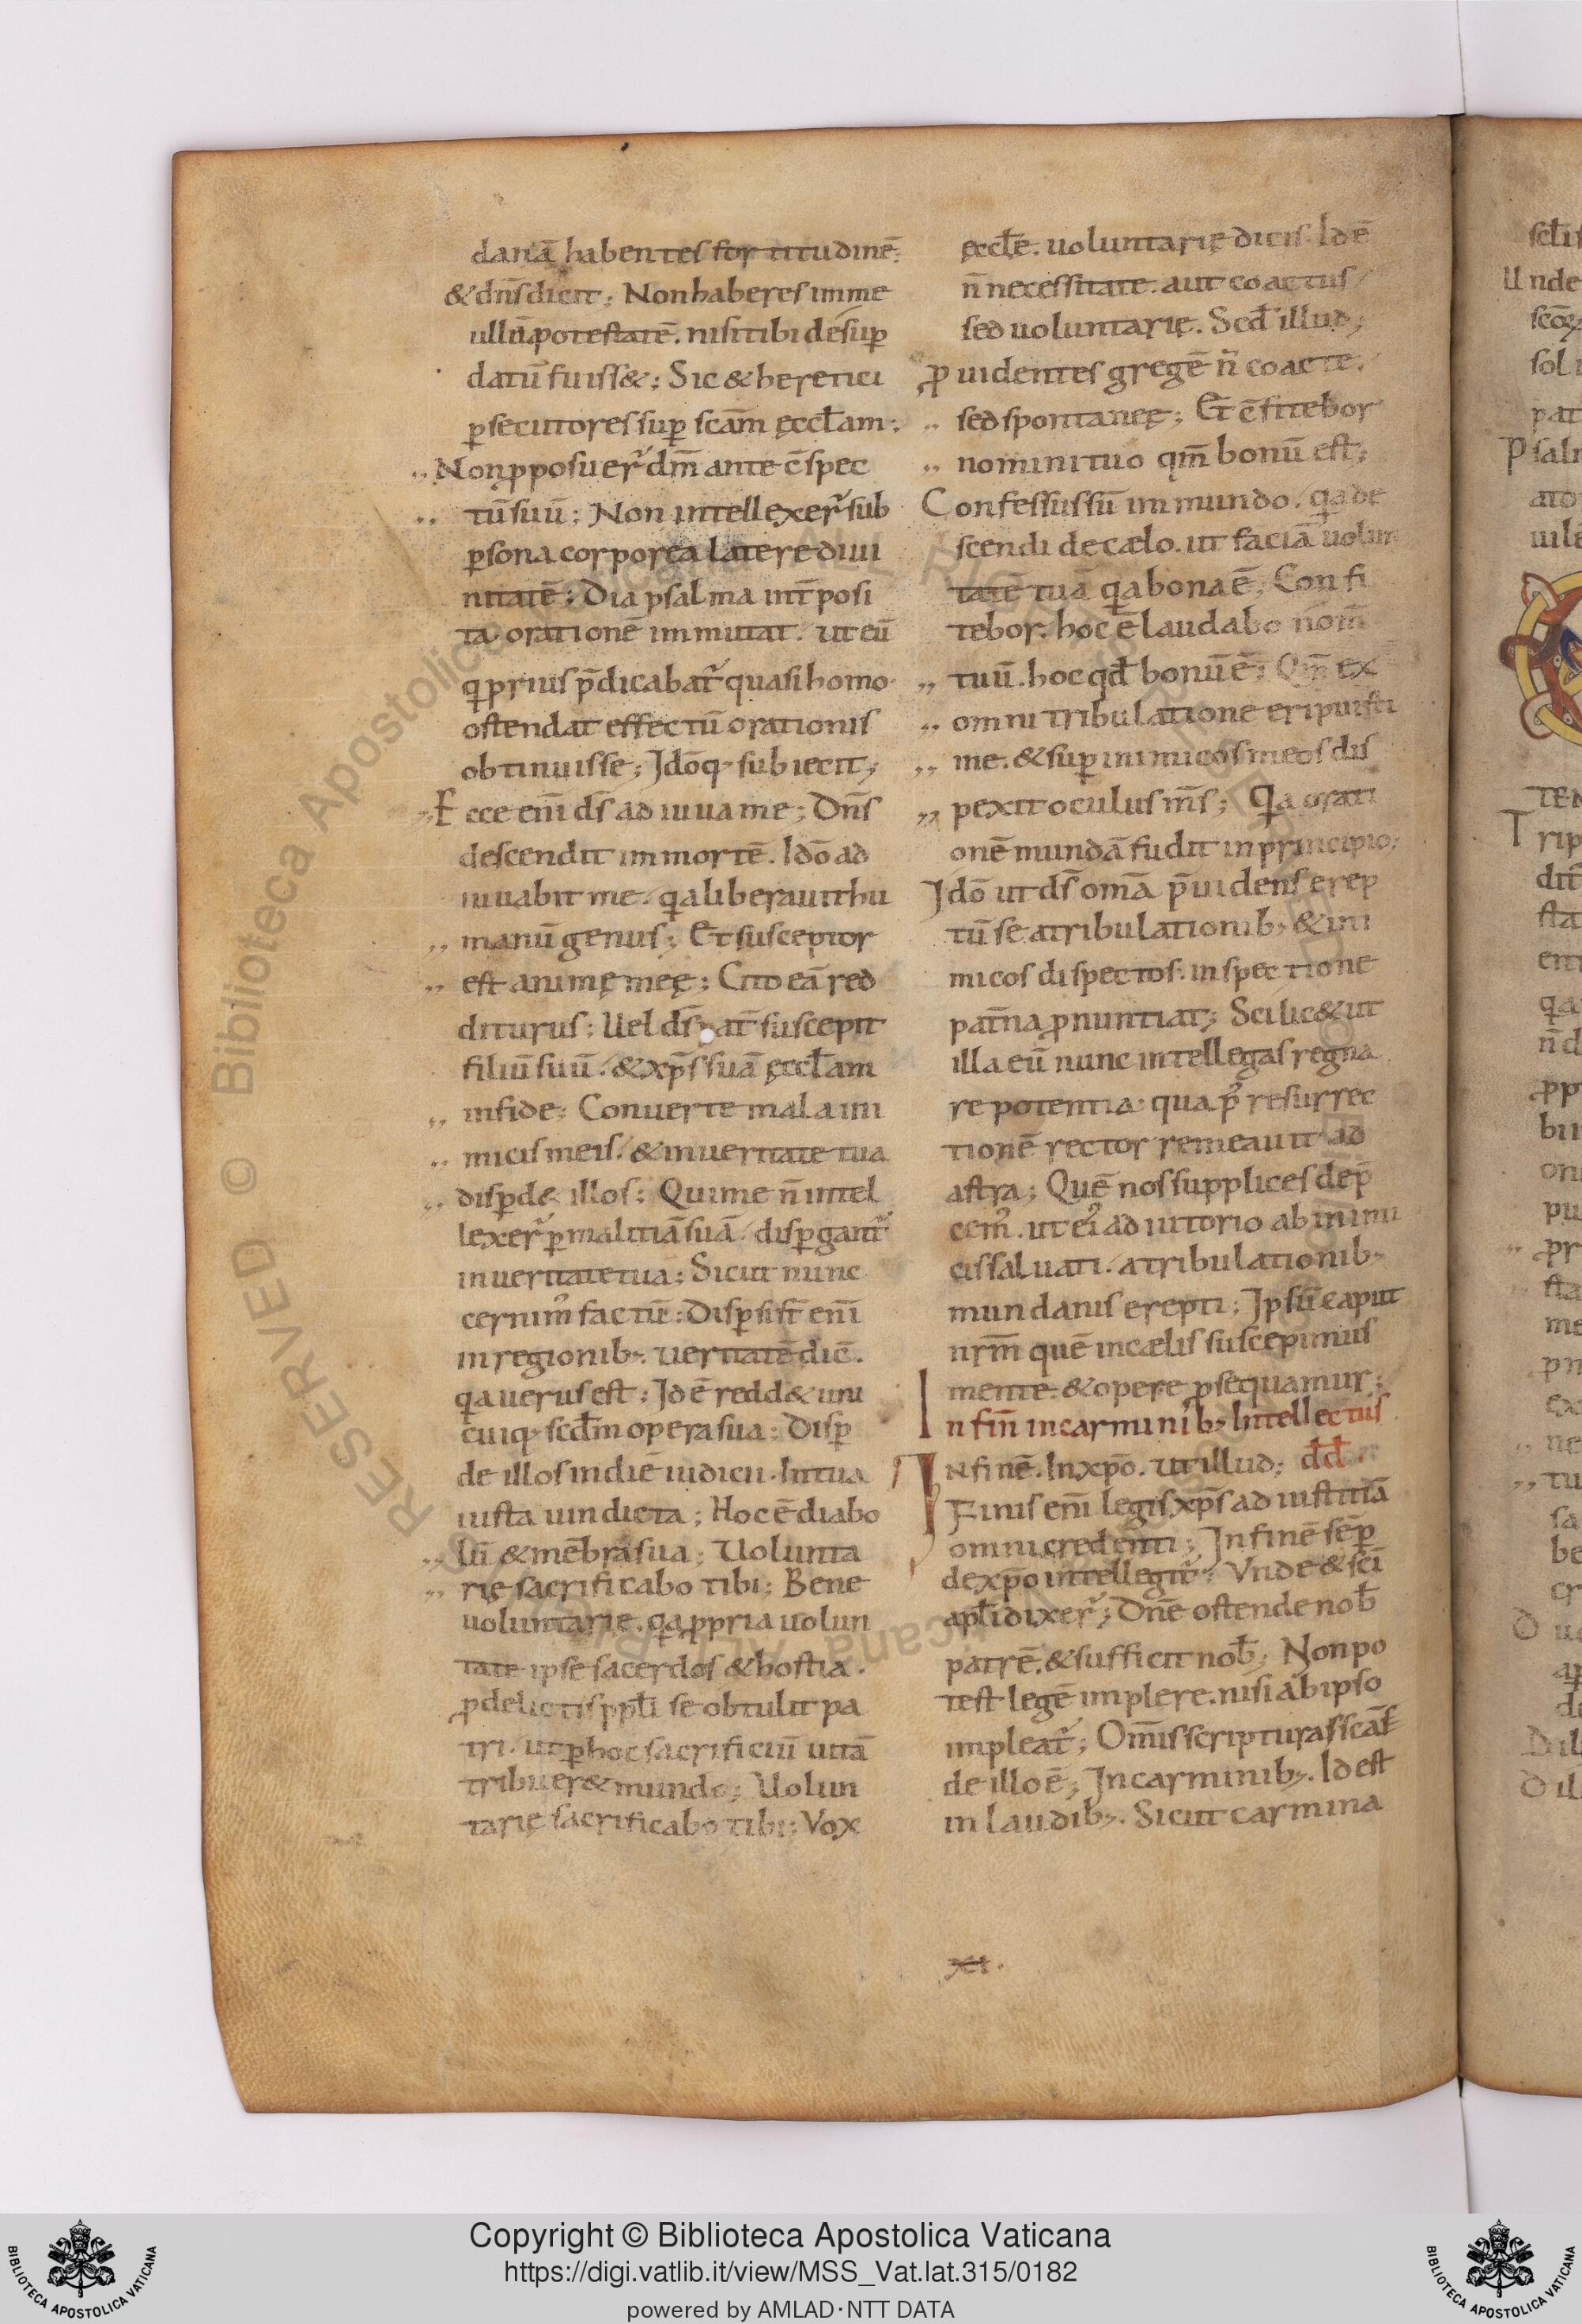 danā habentes fortitudinē.
& dn̄s dicit; Non haberes in me
ullū potestatē. nisi tibi desup̄
datū fuiss&; Sic & heretici
p̱secutores sup̱ scām ęccl̄am;
„ Non p̱posuer̄ dm̄ ante c̄spec
„ tū suū; Non intellexer̄ sub
p̱sona corporea latere diui
nitatē; Diapsalma int̄posi
ta. orationē immutat. ut eū
q̄ prius p̄dicabat̄ quasi homo.
ostendat effectū orationis
obtinuisse; Idōq; subiecit;
„ Ecce eni̅ ds̄ adiuua me; Dn̄s
descendit in mortē. Idō ad
iuuabit me. q̄a liberauit hu
„ manū genus; Et susceptor
„ est animę meę; Cito eā red
diturus; Uel ds̄ pat̄ suscepit
filiū suū. & xp̄s suā ęccl̄am
„ in fide; Conuerte mala ini
„ micis meis. & in ueritate tua
„ disp̱d& illos; Qui me n̄ intel
lexer̄ p̱ malitiā suā. disp̱gant̄
in ueritate tua; Sicut nunc
cernim᾽ factū; Disp̱si st̄ eni̅
in regionib;. ueritatē dic̄.
q̄a uerus est; Id ē redd& uni
cuiq; scd̄m opera sua; Disp̱
de illos in diē iudicii. In tua
iusta uindicta; Hoc ē diabo
„ lū & mēbra sua; Volunta
„ rię sacrificabo tibi; Bene
uoluntarię. q̄a p̱pria uolun
tate ipse sacerdos & hostia.
p̱ delictis ppl̄i se obtulit pa
tri. ut p̱ hoc sacrificiū uitā
tribuer& mundo; Uolun
tarię sacrificabo tibi; Vox
ęccl̄e. uoluntarię dicis. Id ē
n̄ necessitate. aut coactus
sed uoluntarię. Scd̄ illud;
P̱uidentes gregē n̄ coacte.
„ sed spontanee; Et c̄fitebor
„ nomini tuo qm̄ bonū est;
Confessus sū in mundo. q̄a de
scendi de cælo. ut faciā uolun
tatē tuā q̄a bona ē; Confi
tebor. hoc ē laudabo nom̄
„ tuū. hoc qd̄ bonū ē; Qm̄ ex
„ omni tribulatione eripuisti
„ me. & sup̱ inimicos meos dis
„ pexit oculus m̄s; Q̄a orati
onē mundā fudit in principio;
Idō ut ds̄ om̄a p̄uidens erep
tū se a tribulationib; & ini
micos dispectos. inspectione
pat̄na p̱nuntiat; Scilic& ut
illa eū nunc intellegas regna
re potentia. qua p᾽ resurrec
tionē rector remeauit ad
astra; Quē nos supplices dep̄
cem᾽. ut ei᾽ adiutorio ab inimi
cis saluati. a tribulationib;
mundanis erepti; Ipsū caput
nr̄m quē in cælis suscepimus
mente. & opere p̱sequamur;
In fin̄ in carminib; Intellectus
In finē. In xp̄o. ut illud; dd̄.
Finis eni̅ legis xp̄s ad iustitiā
omni credenti; In finē sēp̱
de xp̄o intellegit̄; Vnde & sc̄i
apl̄i dixer̄; Dn̄e ostende nob̄
patrē. & sufficit nob̄; Non po
test legē implere. nisi ab ipso
impleat̄; Om̄is scriptura sc̄a
de illo ē; In carminib;. Id est
in laudib;. Sicut carmina
xi.
Copyright © Biblioteca Apostolica Vaticana
https://digi.vatlib.it/view/MSS_Vat.lat.315/0182
powered by AMLAD·NTT DATA
BIBLIOTECA APOSTOLICA VATICANA
BIBLIOTECA APOSTOLICA VATICANA